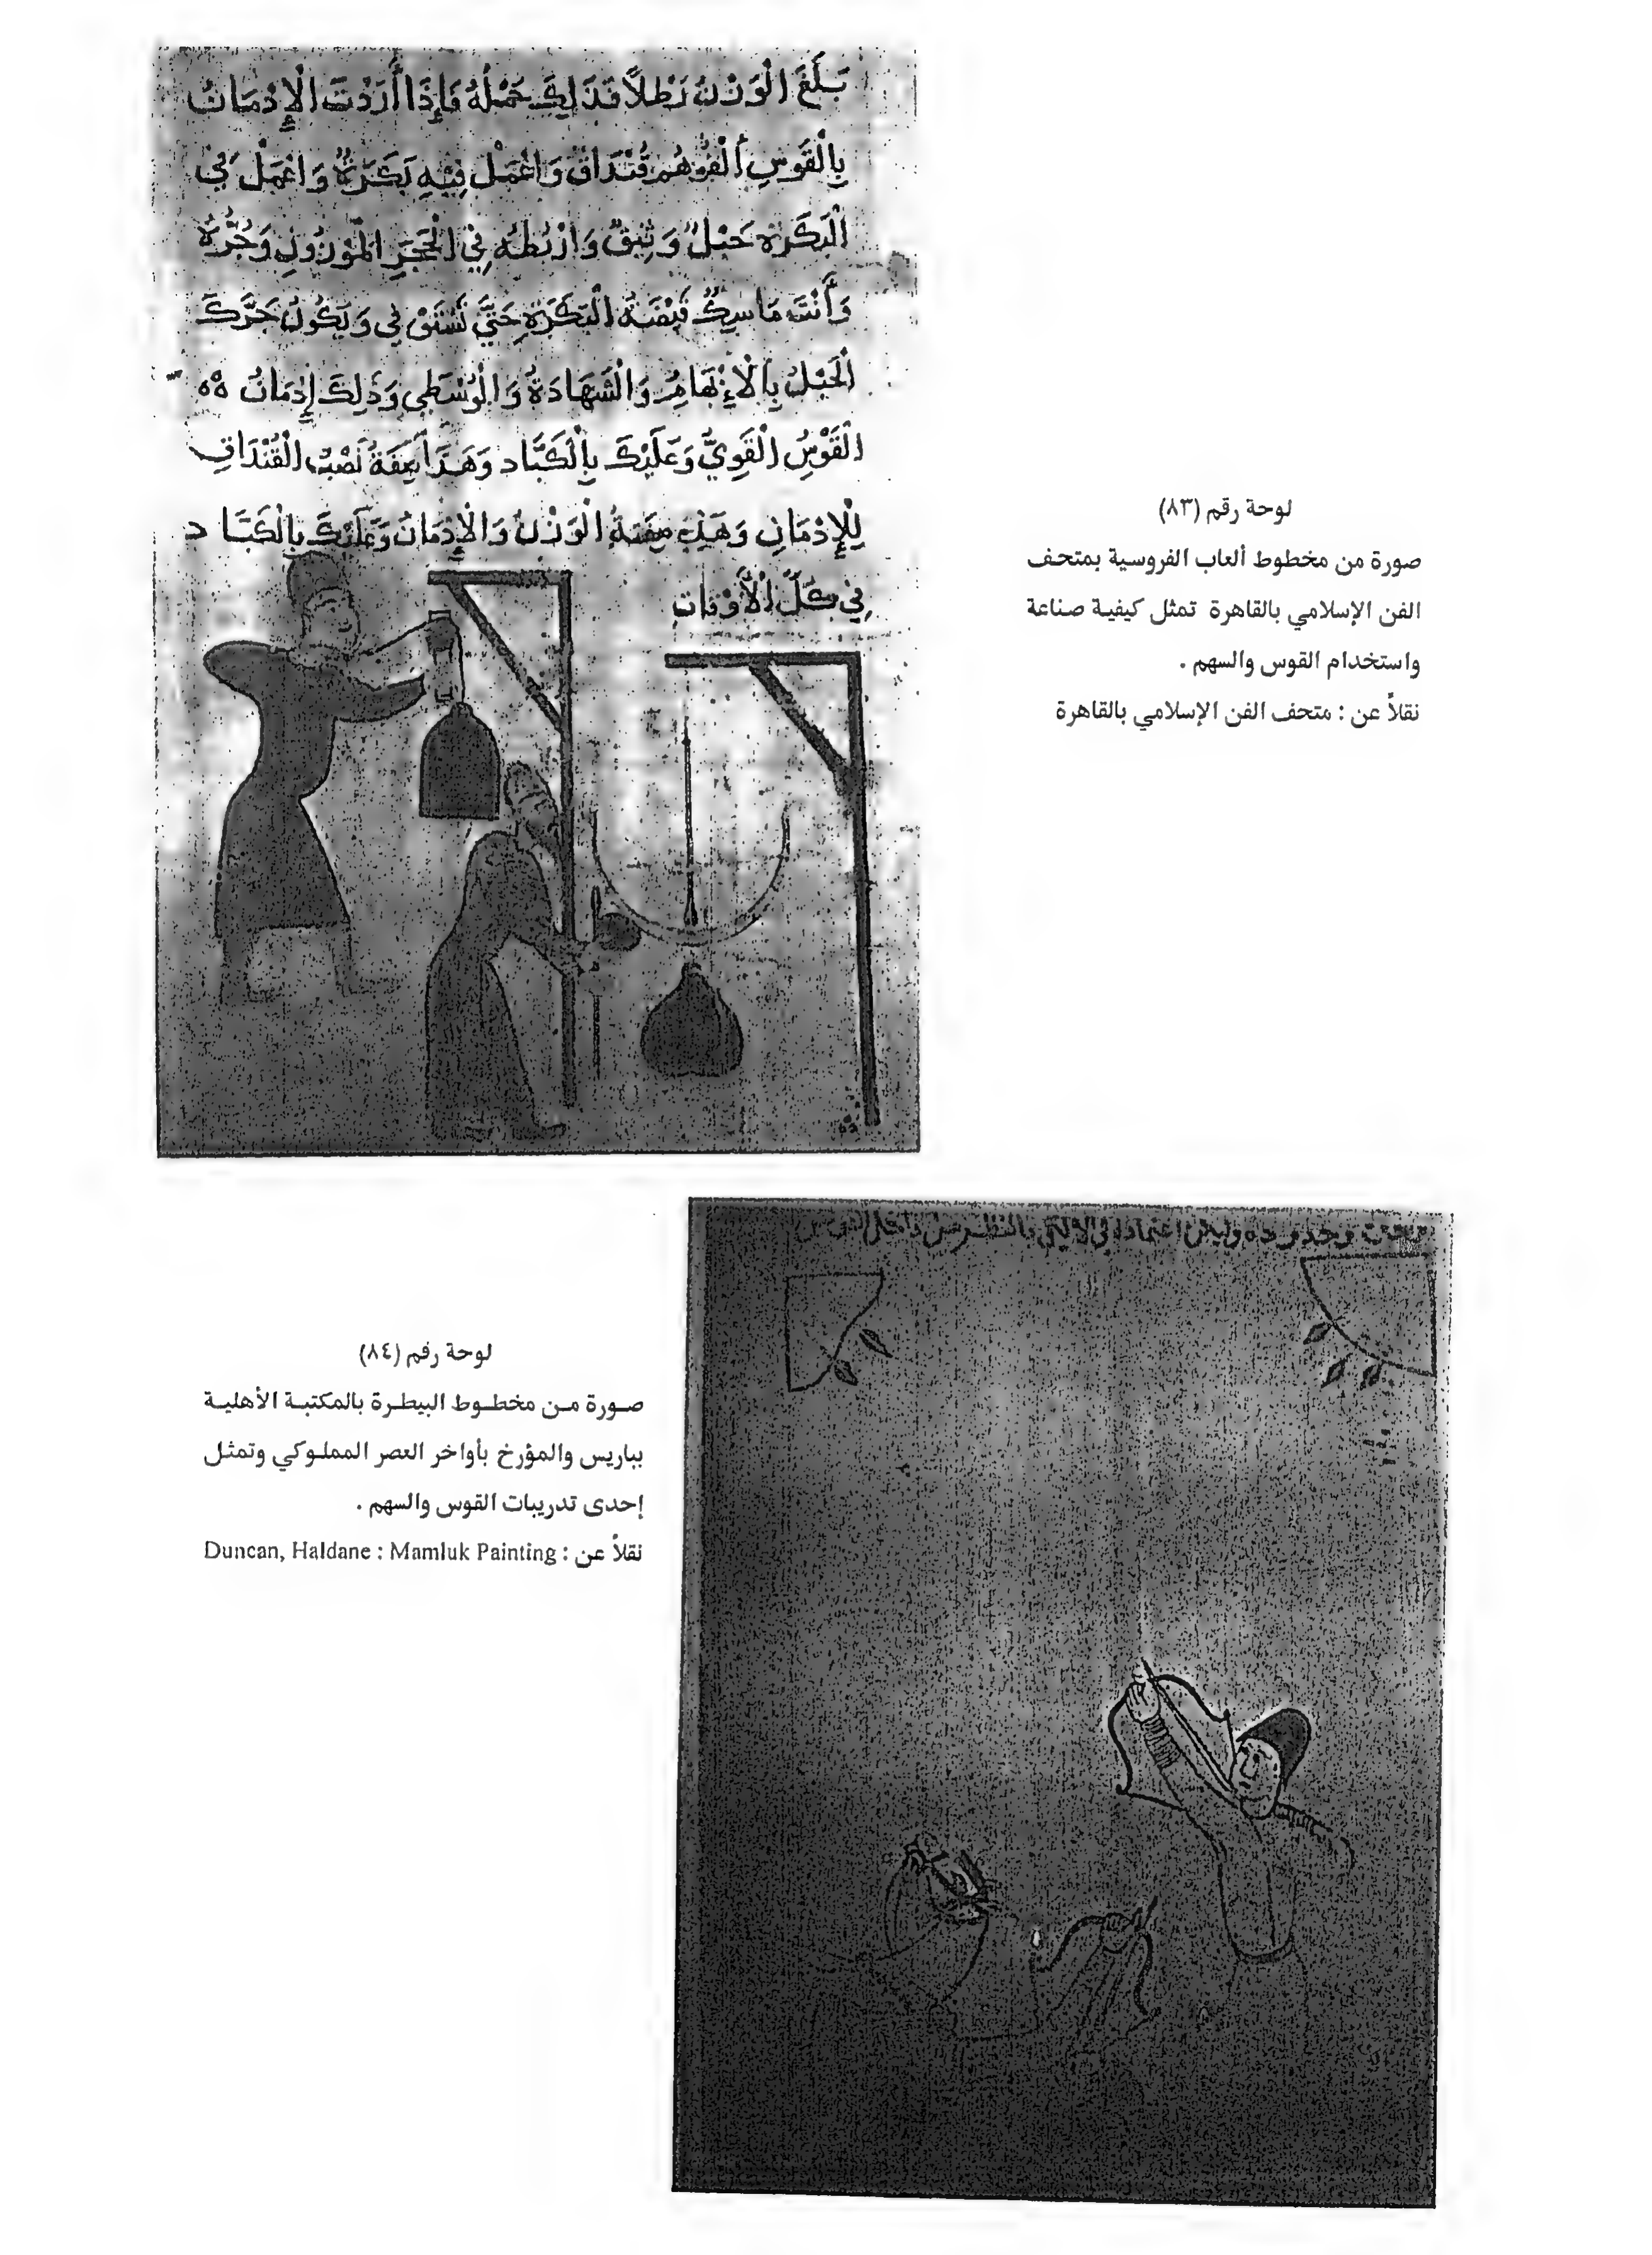 بَلَغَ الْوَزْنُ رَطْلاً فَذَلِكَ حَمْلُهُ فَإِذَا أَرَدْتَ الْإِدْمَانُ
بِالْقَوْسِ قُنْدَاقٌ وَاعْمَلْ فِيْهِ بَكَرَةٌ وَاعْمَلْ فِي
الْبَكَرَةِ حَبْلٌ وَثِيقٌ وَارْبُطْهُ فِي الْحَجَرِ الْمَوْزُونِ وَجُرَّهُ
وَأَنْتَ مَاسِكٌ قَبْضَةُ الْبَكَرَةِ حَتَّى تَسْتَوْفِي وَيَكُونُ جَرَّكَ
الْحَبْلُ بِالْإِبْهَامِ وَالْشَهَادَةُ وَالْوُسْطَى وَذَلِكَ إِدْمَانُ
الْقَوْسُ الْقَوِيُّ وَعَلَيْكَ بِالْكَبَّاد وَهَذَا صِفَةُ نَصْبُ الْقُنْدَاقِ
لِلْإِدْمَانِ وَهَذِهِ صِفَةُ الْوَزْنُ وَالْإِدْمَانُ وَعَلَيْكَ بِالْكَبَّاد
فِي كُلِّ الْأَوْقَاتِ
لوحة رقم (٨٣)
صورة من مخطوط ألعاب الفروسية بمتحف
الفن الإسلامي بالقاهرة تمثل كيفية صناعة
واستخدام القوس والسهم .
نقلاً عن : متحف الفن الإسلامي بالقاهرة
لوحة رقم (٨٤)
صورة من مخطوط البيطرة بالمكتبة الأهلية
بباريس والمؤرخ بأواخر العصر المملوكي وتمثل
إحدى تدريبات القوس والسهم .
نقلاً عن : Duncan, Haldane : Mamluk Painting